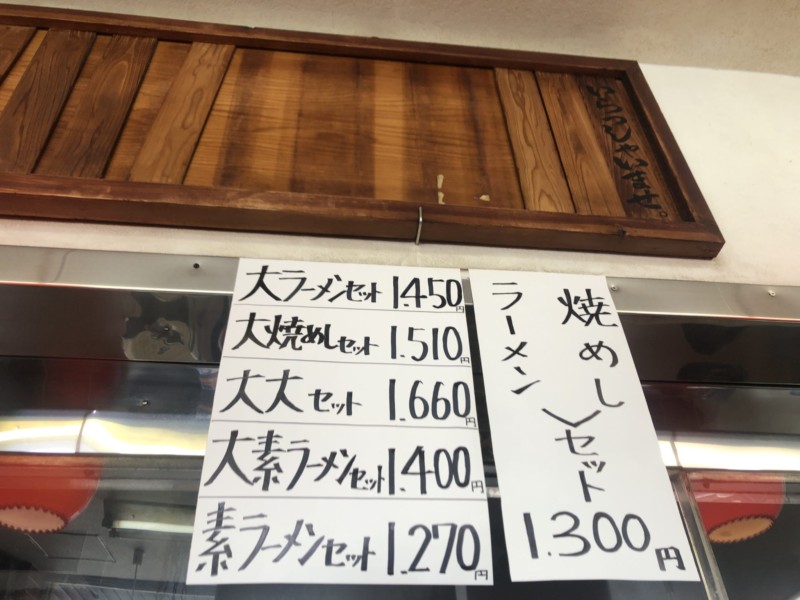 大ラーメンセット 1.450円
大焼めしセット 1.510円
大大セット 1.660円
大素ラーメンセット 1.400円
素ラーメンセット 1.270円
焼めし
ラーメン
セット
1.300円